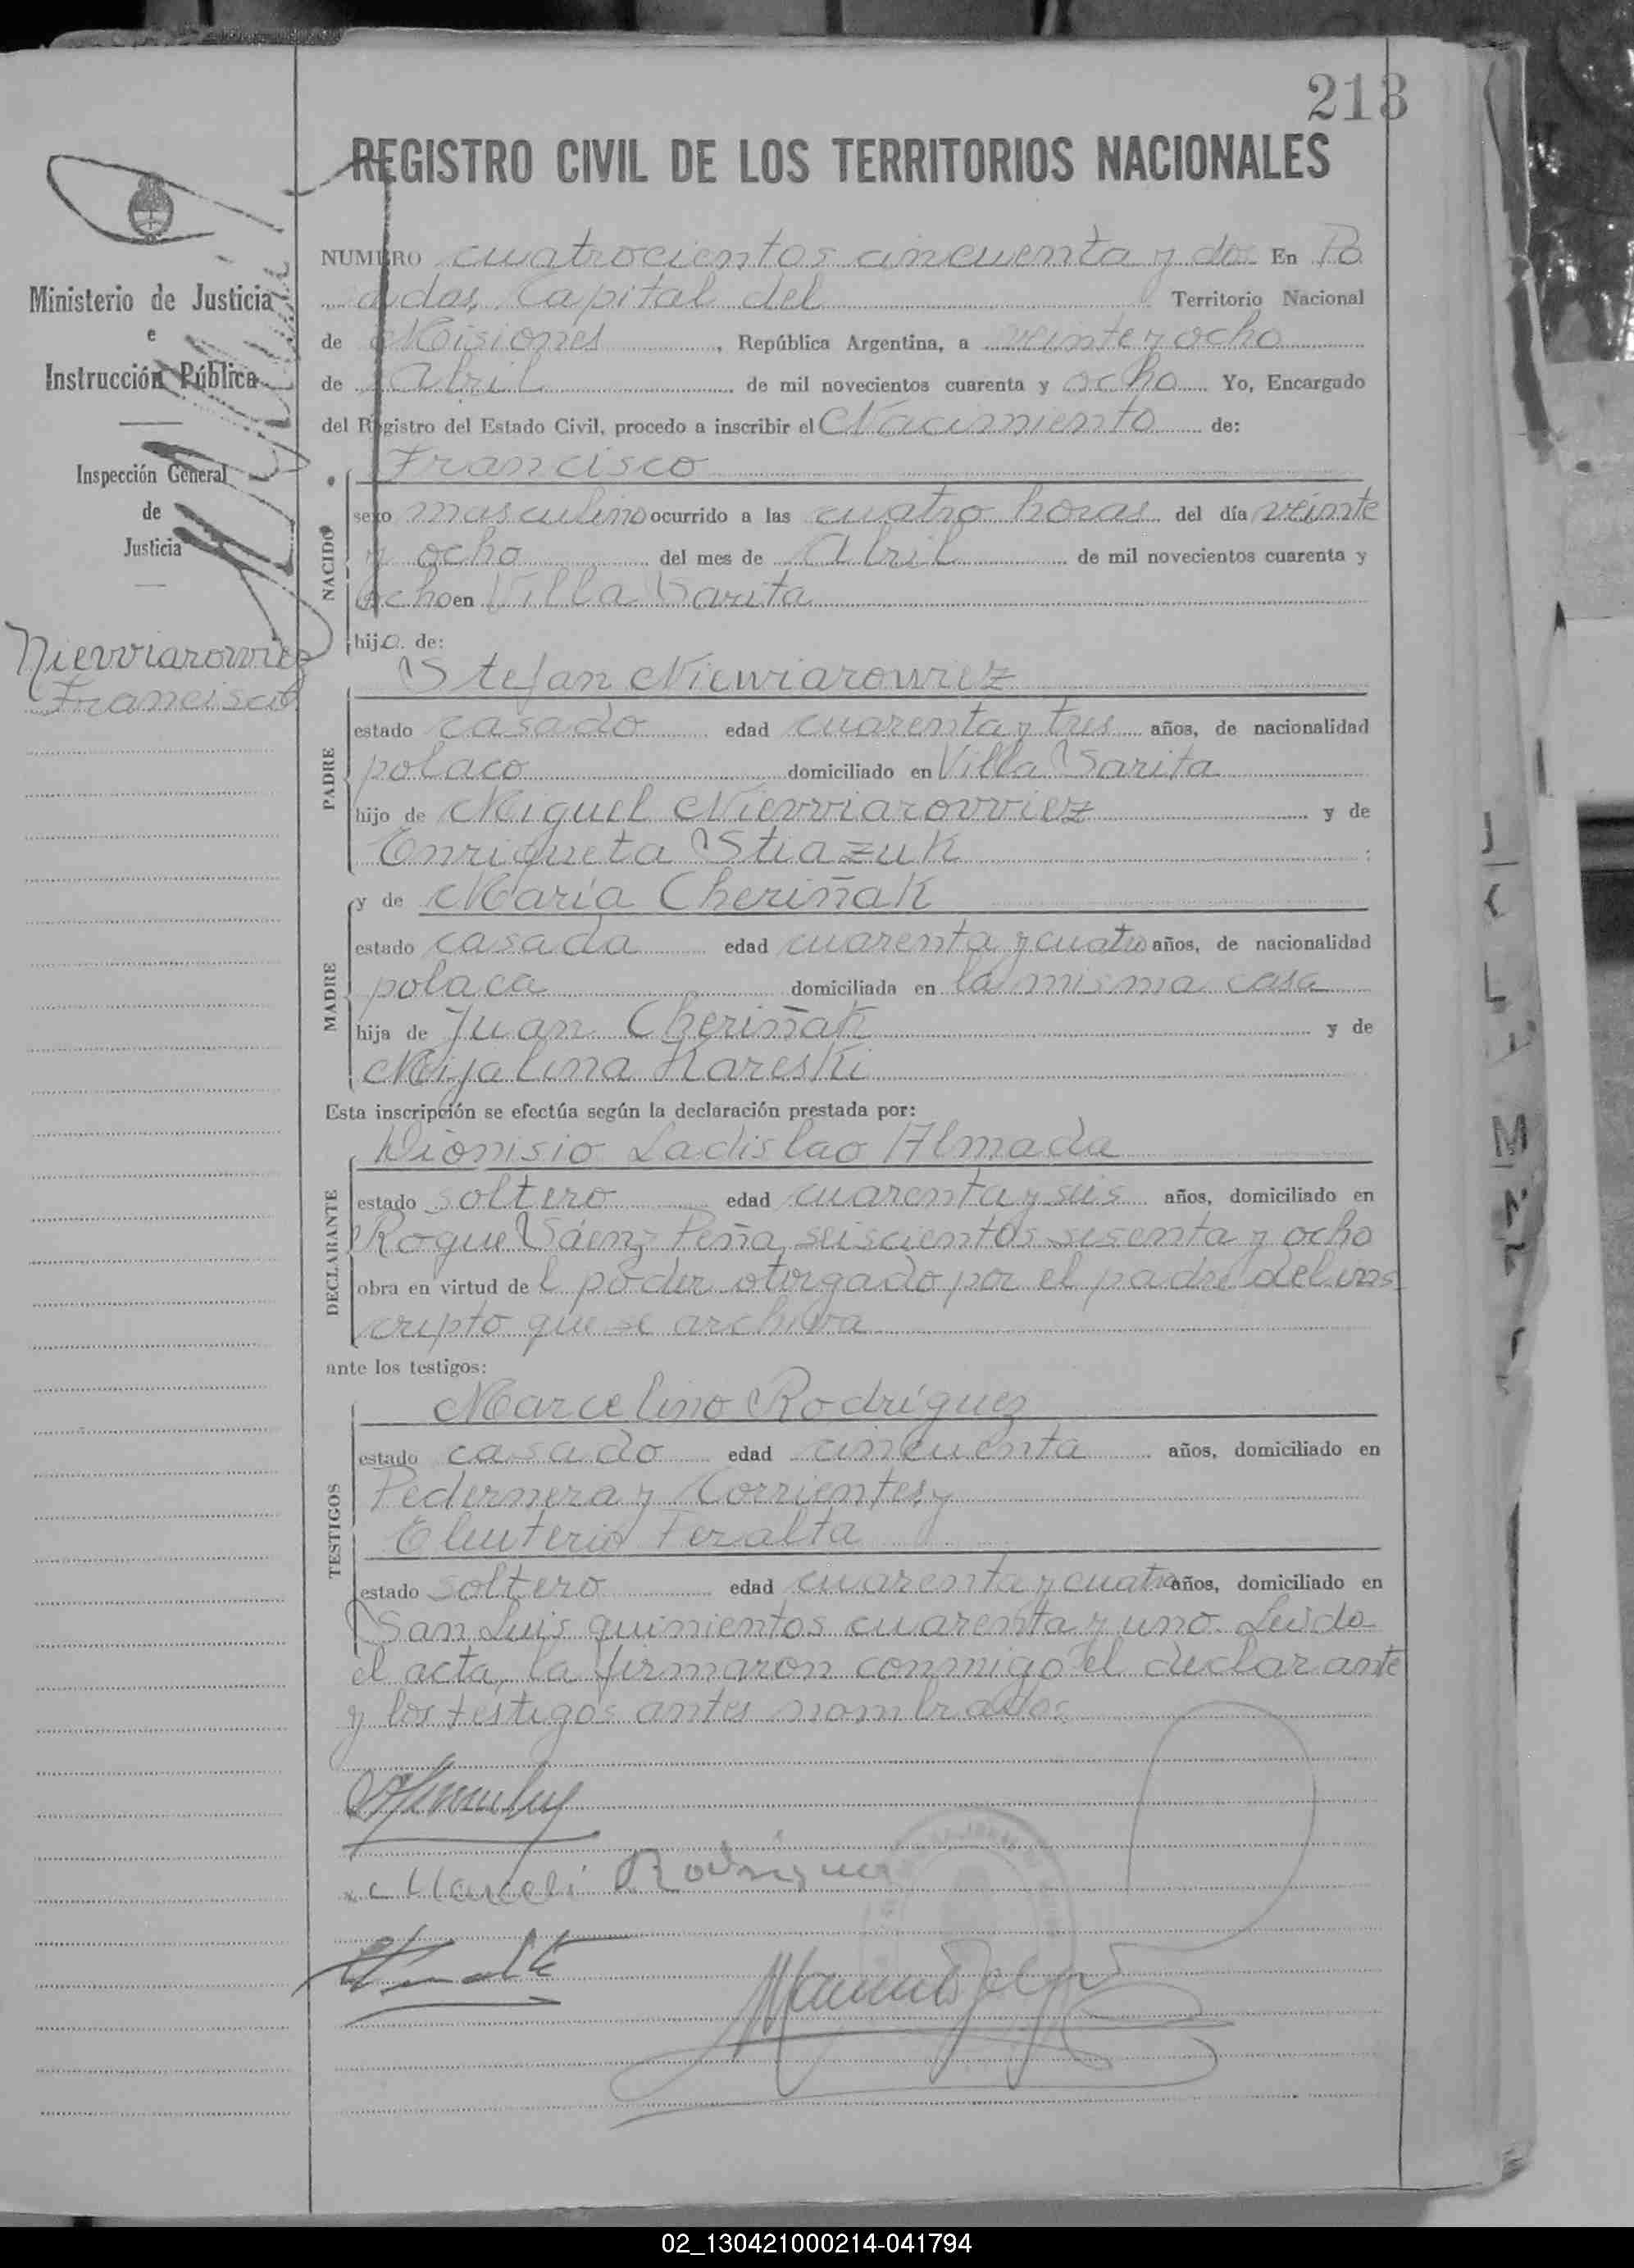 213
REGISTRO CIVIL DE LOS TERRITORIOS NACIONALES
Ministerio de Justicia
e
Instrucción Pública
Inspección General
de
Justicia
Niewiarowiez
Francisco
NUMERO cuatrocientos cincuenta y dos En Po
sadas, Capital del Territorio Nacional
de Misiones, República Argentina, a veinte y ocho
de Abril de mil novecientos cuarenta y ocho Yo, Encargado
del Registro del Estado Civil, procedo a inscribir el Nacimiento de:
NACIDO
Francisco
sexo masculino ocurrido a las cuatro horas del día veinte
y ocho del mes de Abril de mil novecientos cuarenta y
ocho en Villa Sarita
hijo de:
PADRE
Stefan Niewiarowiez
estado casado edad cuarenta y tres años, de nacionalidad
polaco domiciliado en Villa Sarita
hijo de Miguel Niewiarowiez y de
Enriqueta Stiazuk;
MADRE
y de María Cheriñak
estado casada edad cuarenta y cuatro años, de nacionalidad
polaca domiciliada en la misma casa
hija de Juan Cheriñak y de
Mijalina Kareski
Esta inscripción se efectúa según la declaración prestada por:
DECLARANTE
Dionisio Ladislao Almada
estado soltero edad cuarenta y seis años, domiciliado en
Roque Sáenz Peña seiscientos sesenta y ocho
obra en virtud del poder otorgado por el padre del ins
cripto que se archiva
ante los testigos:
TESTIGOS
Marcelino Rodríguez
estado casado edad cincuenta años, domiciliado en
Pedernera y Corrientes y
Eleuterio Peralta
estado soltero edad cuarenta y cuatro años, domiciliado en
San Luis quinientos cuarenta y uno. Leida
el acta, la firmaron conmigo el declarante
y los testigos antes nombrados
Marceli Rodriguez
02_130421000214-041794